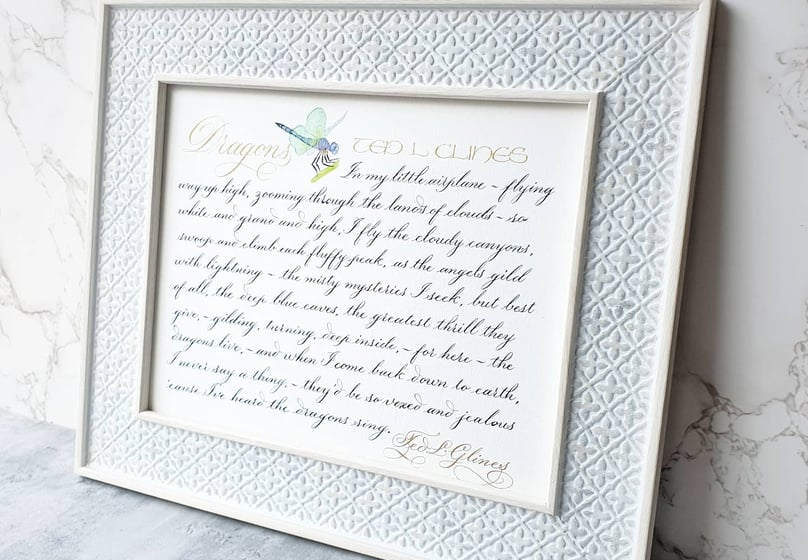 Dragons TED L GLINES
In my little airplane – flying
way up high, zooming through the lands of clouds – so
white and grand and high, I fly the cloudy canyons,
swoop and climb each fluffy peak, as the angels gild
with lightning – the misty mysteries I seek, but best
of all, the deep blue caves, the greatest thrill they
give, – gilding, turning, deep inside, – for here – the
dragons live, – and when I come back down to earth,
I never say a thing, – they'd be so vexed and jealous
'cause I've heard the dragons sing.
Ted L. Glines